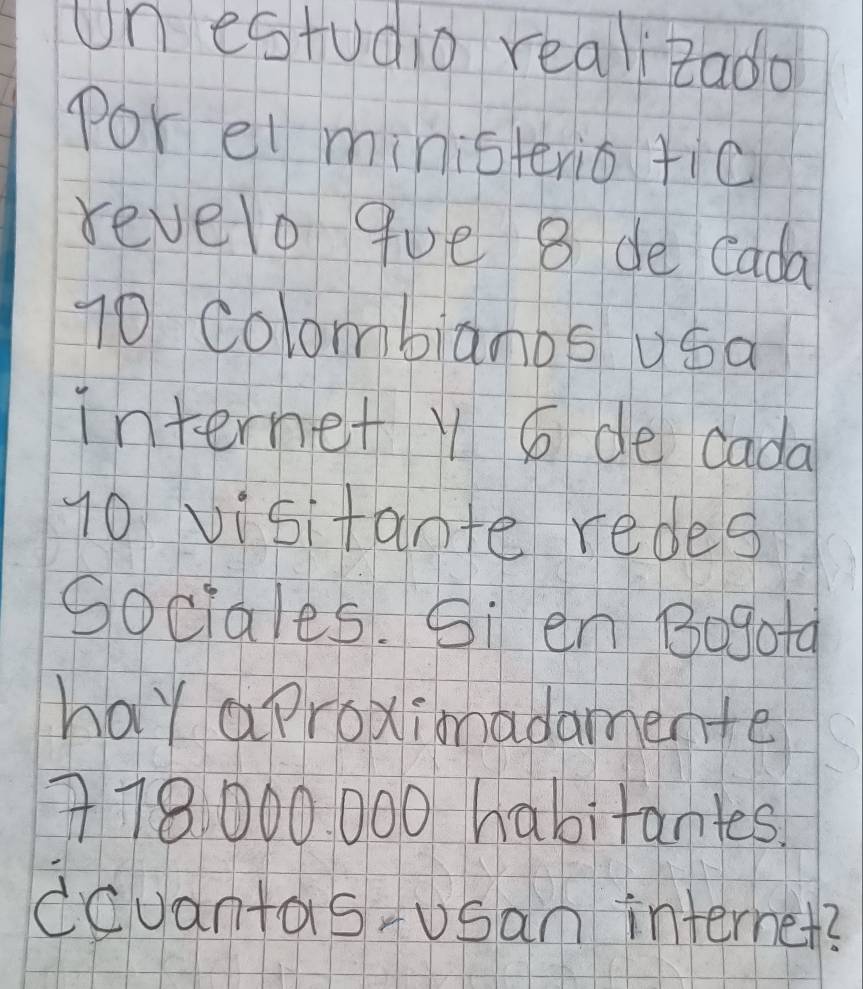 Un estudio realizado
Por el ministerio tic
revelo que 8 de cada
10 colombianos usa
internet y 6 de cada
10 visitante redes
Sociales. Si en Bogota
hay aproximadamente
718.000.000 habitantes.
¿cuantas-usan internet?